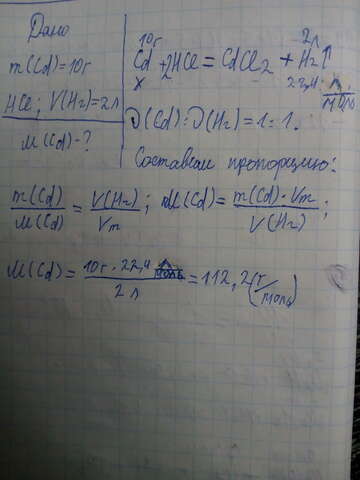 Дано
m(Cd)=10г
HCl; V(H₂)=2л
M(Cd)-?
10г 2л
Cd+2HCl=CdCl₂+H₂↑
x 22,4 л/моль
ν(Cd):ν(H₂)=1:1.
Составим пропорцию:
m(Cd)/M(Cd) = V(H₂)/Vm; M(Cd)= m(Cd)·Vm/V(H₂);
M(Cd)= 10г·22,4 л/моль / 2л =112,2(г/моль)